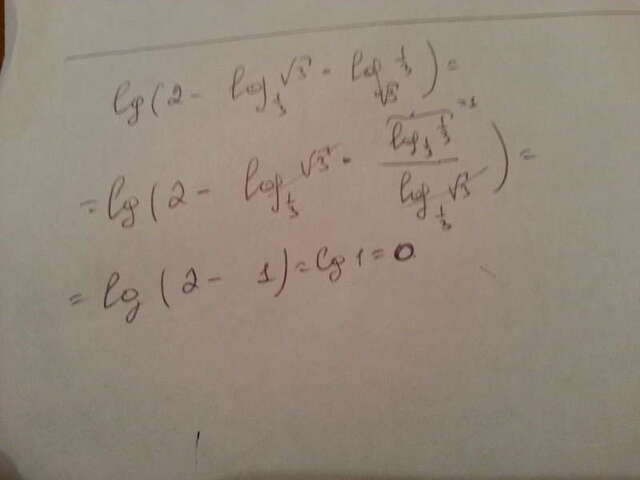 lg(2 - log_{1/3} √3 · log_{√3} 1/3) =
= lg(2 - log_{1/3} √3 · log_{1/3} 1/3 = 1 / log_{1/3} √3) =
= lg(2 - 1) = lg 1 = 0